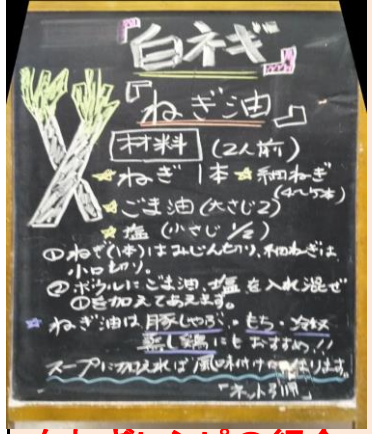 『白ネギ』
『ねぎ油』
材料 (2人前)
☆ねぎ 1本 ☆細ねぎ
(4〜5本)
☆ごま油 (大さじ2)
☆塩 (小さじ 1/2)
①ねぎ(1本)はみじん切り、細ねぎは、
小口切り。
②ボウルにごま油、塩を入れ混ぜ
①を加えてあえます。
☆ねぎ油は、豚しゃぶ・もち・冷奴
蒸し鶏にもおすすめ!!
スープに加えれば風味付けになります。
「ネット引用」